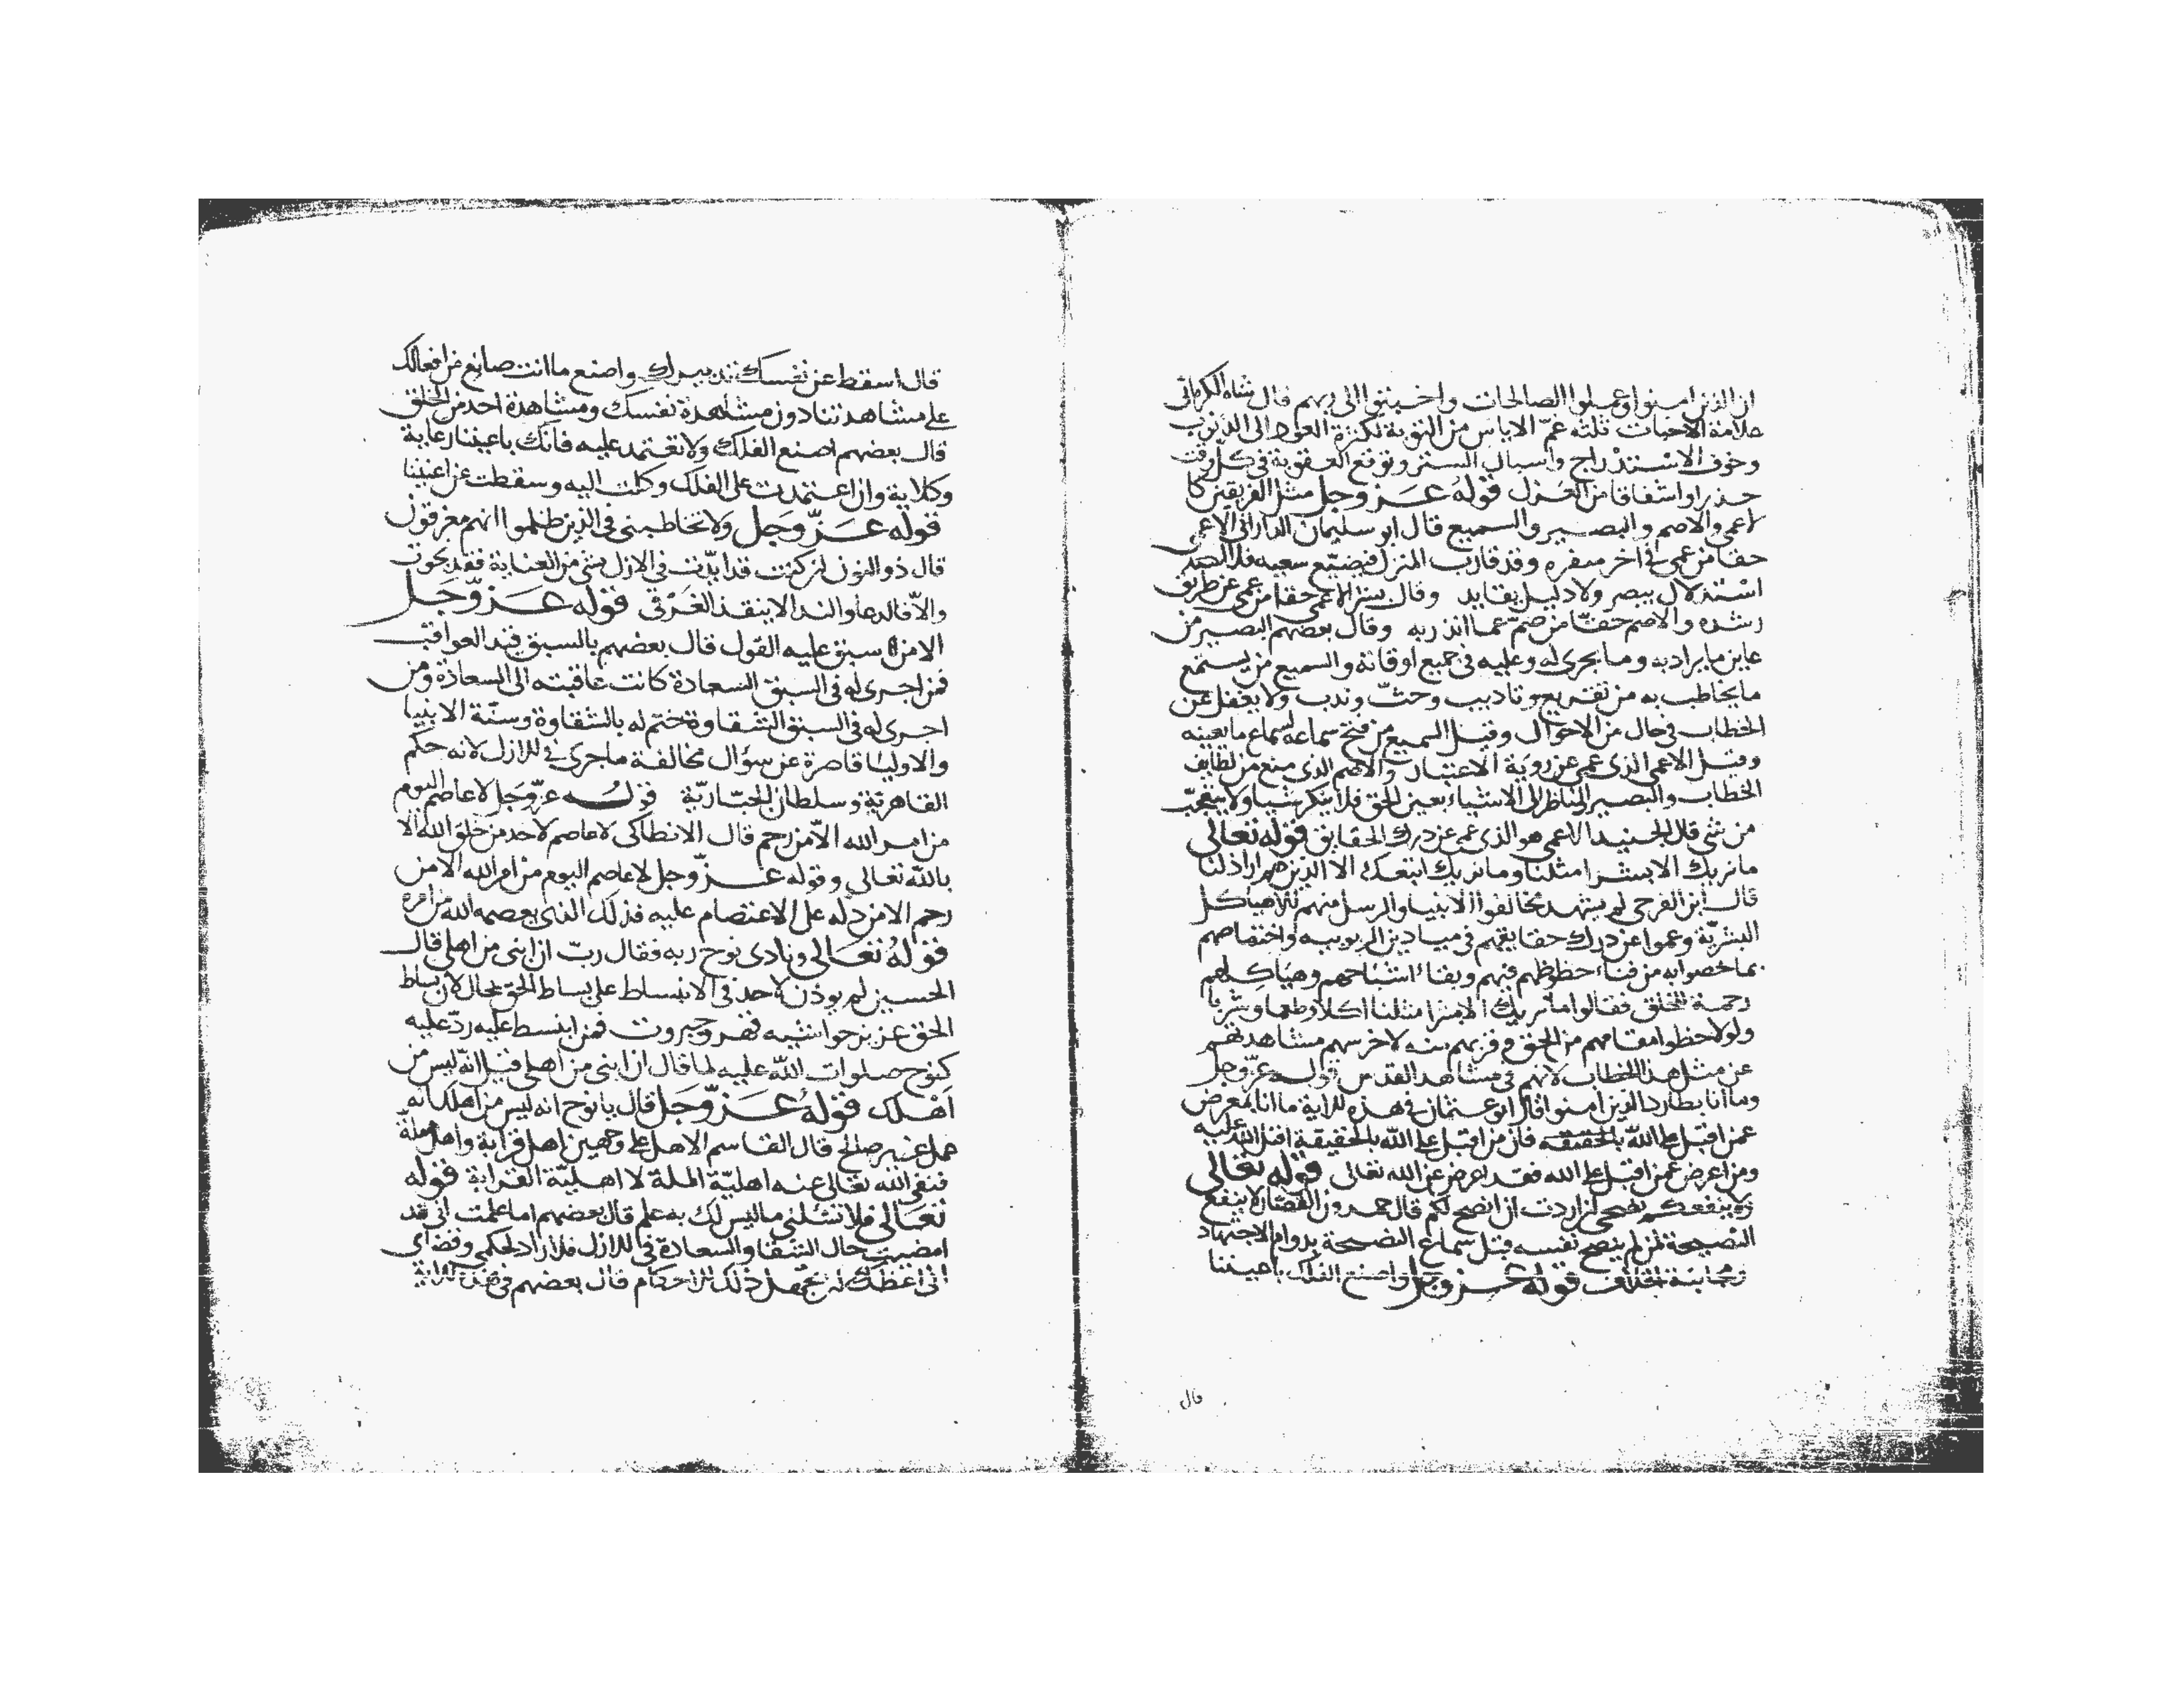 ان الذين امنوا وعملوا الصالحات واخبتوا الى ربهم قال شاه الكرمانى
علامة الاخبات ثلثه غم الاياس من التوبة لكثرة العود الى الذنوب
وخوف الاستدراج واسبال الستر وتوقع العقوبة فى كل وقت
حذرا واشفاقا من العدل قوله عز وجل مثل الفريقين كا
لاعمى والاصم والبصير والسميع قال ابو سليمان الدارانى الاعمى
حقا من عمى فى اخر سفره وقد قارب المنزل فيضيع سعيه فلا
استدلال يبصر ولا دليل يقايد وقال بعضهم الاعمى حقا من عمى عن طريق
رشده والاصم حقا من صم عما انذر به وقال بعضهم البصير من
عاين ما يراد به وما يجرى له وعليه فى جميع اوقاته والسميع من يستمع
ما يخاطب به من تقريع وتاديب وحث وندب ولا يغفل عن
الخطاب فى حال من الاحوال وقيل السميع من فتح سماعه لسماع ما يعينه
وقيل الاعمى الذى عمى عن روية الاعتبار والاصم الذى منع من لطايف
الخطاب والبصير الناظر الى الاشياء بعين الحق فلا ينكر شيا ولا يتعجب
من شى قال الجنيد الاعمى هو الذى عمى عن درك الحقايق قوله تعالى
ما نريك الا بشرا مثلنا وما نريك اتبعك الا الذين هم اراذلنا
قال ابن الفرحى لم يشهد مخالفوا الانبيا والرسل منهم الا هياكل
البشرية وعموا عن درك حقايقهم فى ميادين الربوبيه واختصاصهم
بما خصوا به من فناء حظوظهم فيهم وبقاء اشباحهم وهياكلهم
رحمة للخلق فقالوا ما نريك الا بشرا مثلنا اكلا وطعما وشربا
ولو لاحظوا مقامهم من الحق وقربهم منه لاخرسهم مشاهدتهم
عن مثل هذا الخطاب لانهم فى مشاهد القدس قوله عز وجل
وما انا بطارد الذين امنوا قال ابو عثمان فى هذه الاية ما انا بمعرض
عمن اقبل على الله بالحقيقة فان من اقبل على الله بالحقيقة اقبل الله عليه
ومن اعرض عمن اقبل على الله فقد اعرض عن الله تعالى قوله تعالى
ولا ينفعكم نصحى ان اردت ان انصح لكم قال حمدون القصار لا ينفع
النصيحة لمن لم ينصح نفسه قبل سماع النصيحة بدوام الاجتهاد
ومجانبة الخلاف قوله عز وجل واصنع الفلك باعيننا
قال
قال اسقط عن نفسك تدبيرك واصنع ما انت صانع من افعالك
على مشاهدتنا دون مشاهدة نفسك ومشاهدة احد من الخلق
قال بعضهم اصنع الفلك ولا تعتمد عليه فانك باعيننا رعاية
وكلاية وان اعتمدت على الفلك وكلت اليه وسقطت عن اعيننا
قوله عز وجل ولا تخاطبنى فى الذين ظلموا انهم مغرقون
قال ذو النون ان كنت قد ايدت فى الازل بشى من العناية فقد نجوت
والا فالدعا والندا لا ينقذ الغرقى قوله عز وجل
الا من سبق عليه القول قال بعضهم بالسبق قيد العواقب
فمن اجرى له فى السبق السعادة كانت عاقبته الى السعادة ومن
اجرى له فى السبق الشقاوة ختم له بالشقاوة وسنة الانبيا
والاوليا قاصرة عن سؤال مخالفة ما جرى فى الازل لانه حكم
القاهرية وسلطان الجبارية قوله عز وجل لا عاصم اليوم
من امر الله الا من رحم قال الانطاكى لا عاصم لاحد من خلق الله الا
بالله تعالى وقوله عز وجل لا عاصم اليوم من امر الله الا من
رحم الا من دله على الاعتصام عليه فذلك الذى يعصمه الله من امره
قوله تعالى ونادى نوح ربه فقال رب ان ابنى من اهلى قال
الحسين لم يوذن لاحد فى الانبساط على بساط الحق بحال لان بساط
الحق عزيز حواشيه قهر وجبروت فمن انبسط عليه رد عليه
كنوح صلوات الله عليه لما قال ان ابنى من اهلى قيل انه ليس من
اهلك قوله عز وجل قال يا نوح انه ليس من اهلك انه
عمل غير صالح قال القاسم الاهل على وجهين اهل قرابة واهل ملة
فنفى الله تعالى عنه اهلية الملة لا اهلية القرابة قوله
تعالى فلا تسئلنى ما ليس لك به علم قال بعضهم اما علمت انى قد
امضيت حال الشقا والسعادة فى الازل فلا راد لحكمى وقضاى
انى اعظك ان تجهل ذلك الاحكام قال بعضهم فى هذه الاية